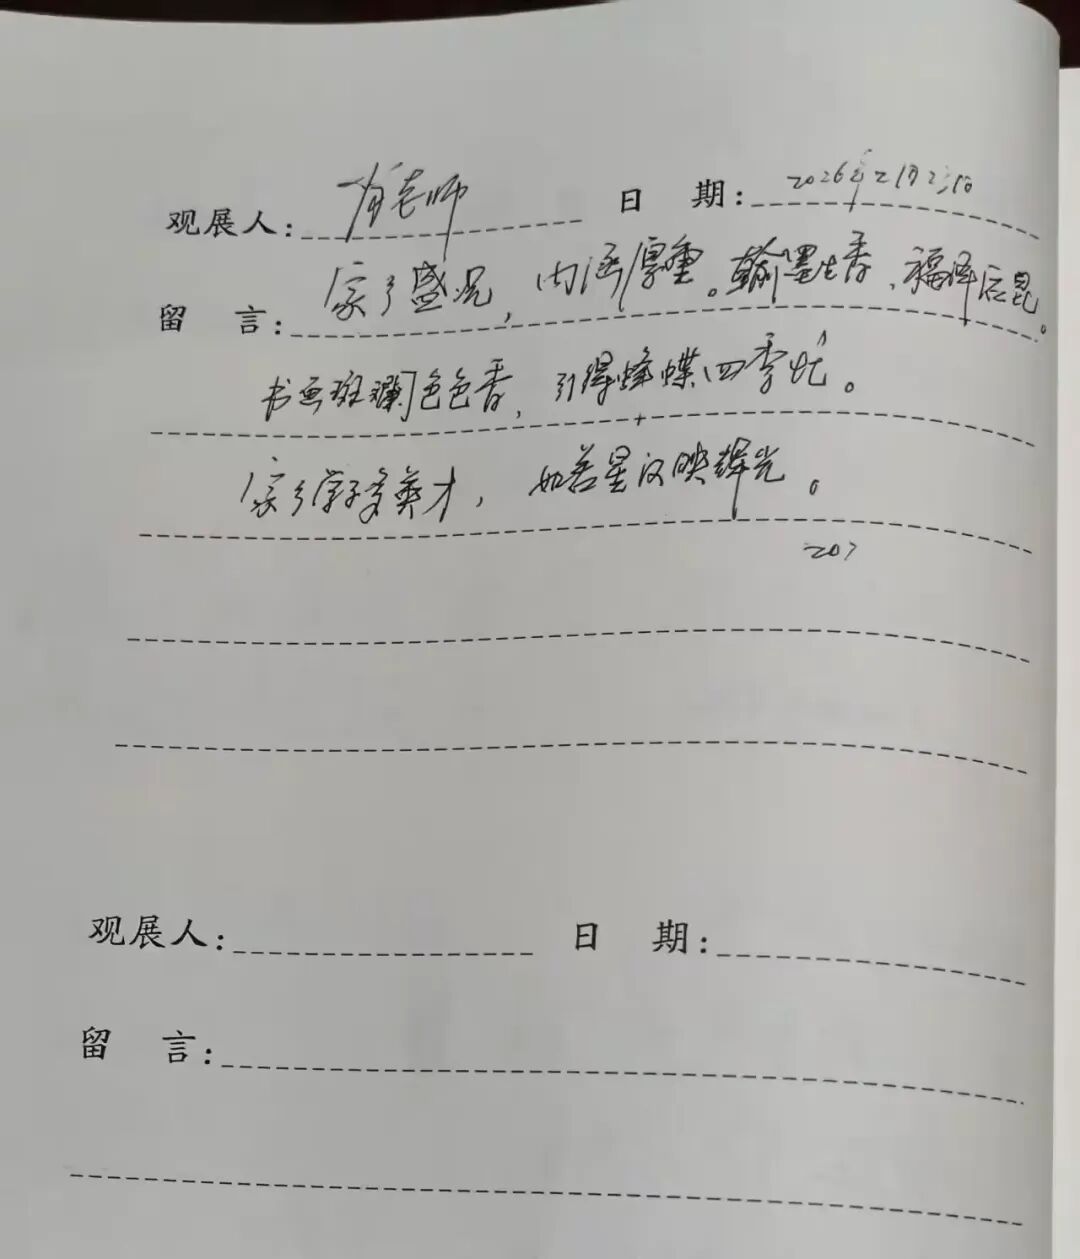 观展人: 肖老师 日 期: 2026年2月23日
留 言: 家乡盛况，内涵厚重。翰墨生香、福泽后昆。
书画斑斓色色香，引得蜂蝶四季忙。
家乡学子多英才，如若星汉映辉光。
观展人: 日 期:
留 言: